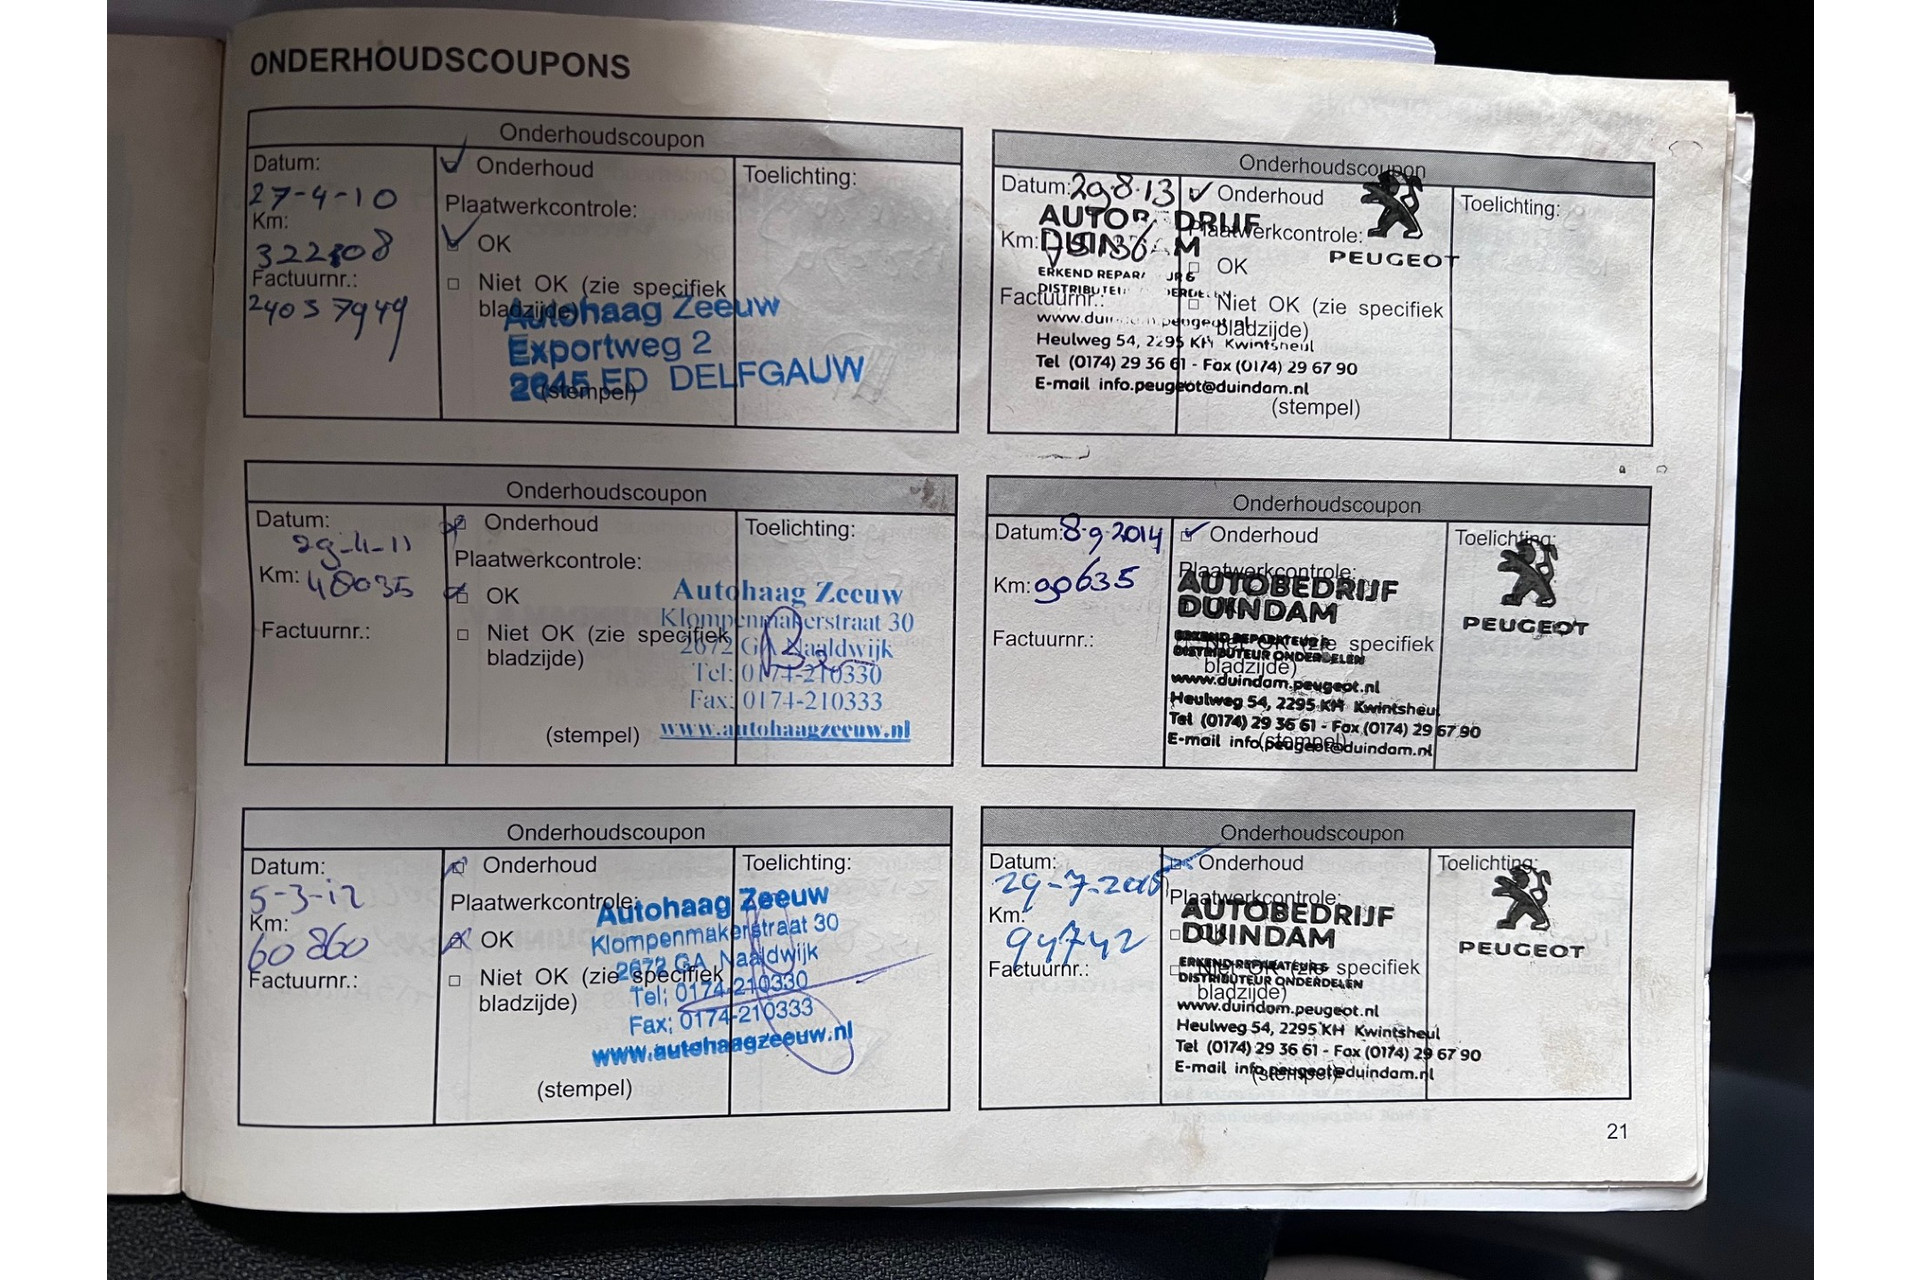 ONDERHOUDSCOUPONS
Onderhoudscoupon
Datum:
27-4-10
Km:
Factuurnr.:
24057949
Onderhoud
Plaatwerkcontrole:
OK
Niet OK (zie specifiek
bladzijde)
Autohaag Zeeuw
Exportweg 2
2645 ED DELFGAUW
(stempel)
Toelichting:
Onderhoudscoupon
Datum:
29-4-11
Km: 48035
Factuurnr.:
Onderhoud
Plaatwerkcontrole:
OK
Niet OK (zie specifiek
bladzijde)
(stempel)
Toelichting:
Autohaag Zeeuw
Klompenmakerstraat 30
2672 GA Naaldwijk
Tel: 0174-210330
Fax: 0174-210333
www.autohaagzeeuw.nl
Onderhoudscoupon
Datum:
5-3-12
Km:
60860
Factuurnr.:
Onderhoud
Plaatwerkcontrole:
OK
Niet OK (zie specifiek
bladzijde)
(stempel)
Toelichting:
Autohaag Zeeuw
Klompenmakerstraat 30
2672 GA Naaldwijk
Tel; 0174-210330
Fax; 0174-210333
www.autohaagzeeuw.nl
Onderhoudscoupon
Datum: 29.8.13
Km:
Factuurnr.:
Onderhoud
Plaatwerkcontrole:
OK
Niet OK (zie specifiek
bladzijde)
(stempel)
Toelichting:
PEUGEOT
AUTOBEDRIJF
DUINDAM
Heulweg 54, 2295 KH Kwintsheul
Tel (0174) 29 36 61 - Fax (0174) 29 67 90
E-mail info.peugeot@duindam.nl
Onderhoudscoupon
Datum: 8-9-2014
Km: 90635
Factuurnr.:
Onderhoud
Plaatwerkcontrole:
(zie specifiek
bladzijde)
(stempel)
Toelichting:
PEUGEOT
AUTOBEDRIJF
DUINDAM
ERKEND REPARATEUR &
DISTRIBUTEUR ONDERDELEN
www.duindam.peugeot.nl
Heulweg 54, 2295 KH Kwintsheul
Tel (0174) 29 36 61 - Fax (0174) 29 67 90
E-mail info.peugeot@duindam.nl
Onderhoudscoupon
Datum:
29-7-2015
Km:
94742
Factuurnr.:
Onderhoud
Plaatwerkcontrole:
(zie specifiek
bladzijde)
(stempel)
Toelichting:
PEUGEOT
AUTOBEDRIJF
DUINDAM
ERKEND REPARATEUR &
DISTRIBUTEUR ONDERDELEN
www.duindam.peugeot.nl
Heulweg 54, 2295 KH Kwintsheul
Tel (0174) 29 36 61 - Fax (0174) 29 67 90
E-mail info.peugeot@duindam.nl
21